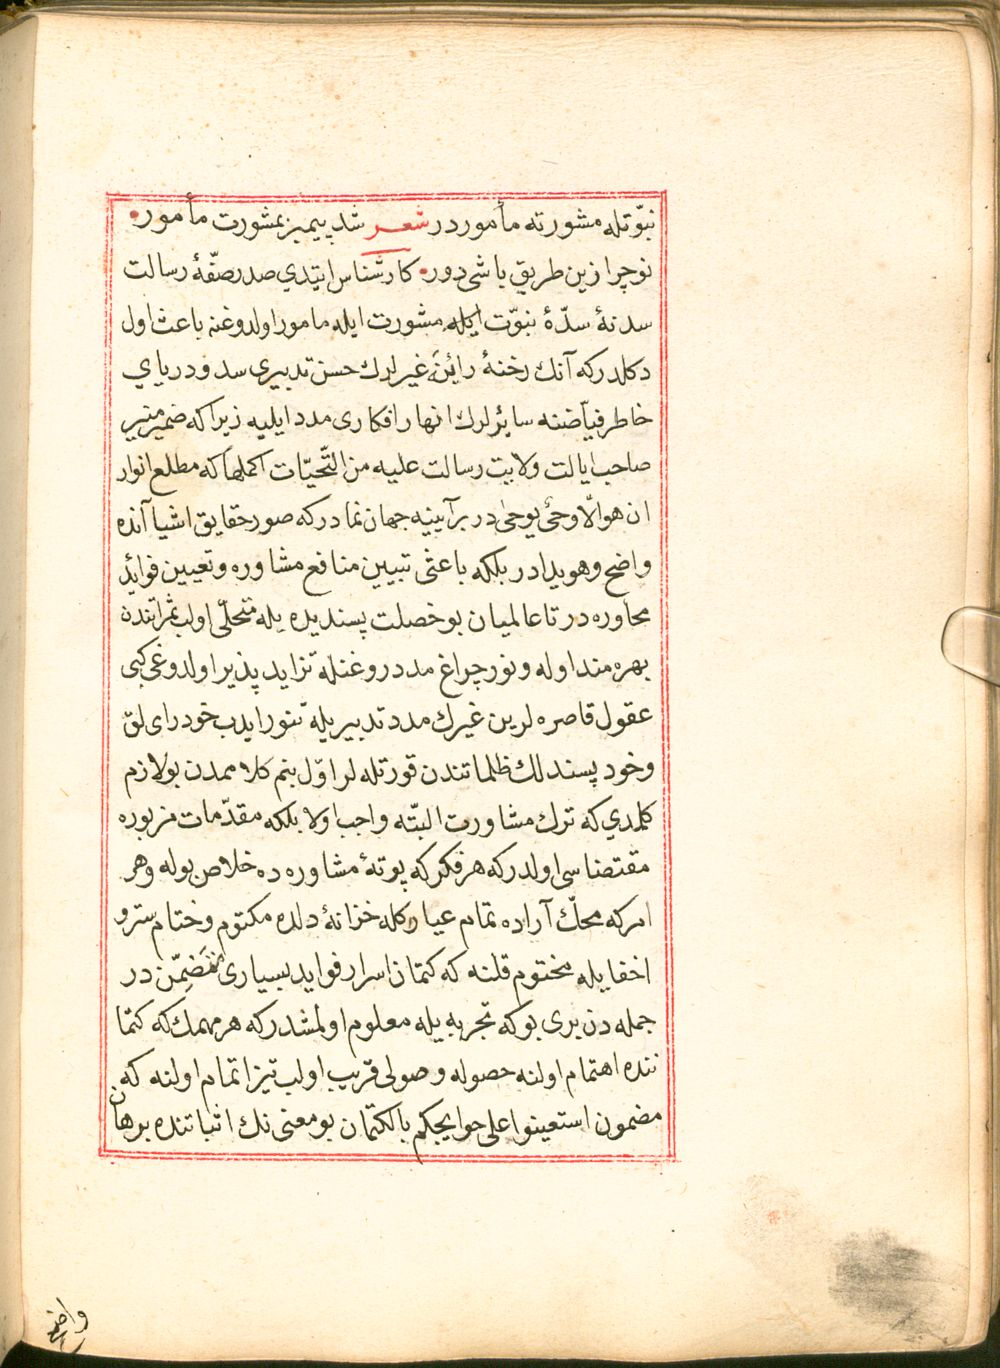 نبوّتله مشورته مأموردر شعر شد پیمبر بمشورت مأمور
نوچرا زین طریق باشی دور کارشناس ایتدی صدر صفّهٔ رسالت
سدنهٔ سدّهٔ نبوّت ایله مشورت ایله مامور اولدوغنه باعث اول
دکلدر که آنك رخنهٔ رائین غیرلرك حسن تدبیری سد و دریای
خاطر فیّاضنه سائرلرك انهار افکاری مدد ایلیه زیرا که ضمیر منیر
صاحب ایالت ولایت رسالت علیه من التّحیّات اکملها که مطلع انوار
ان هو الّا وحیٌ یوحی در بر آیینه جهان نمادر که صور حقایق اشیا آنده
واضح وهویدادر بلکه باعثی تبیین منافع مشاوره وتعیین فوائد
محاوره در تا عالمیان بو خصلت پسندیده یله متحلّی اولب ثمراتندن
بهره مند اوله و نور چراغ مدد روغنله تزاید پذیر اولدوغی کبی
عقول قاصره لرین غیرك مدد تدبیریله تنور ایدب خود رای لق
وخود پسندلك ظلماتندن قورتله لر اوّل بنم کلاممدن بو لازم
کلمدی که ترك مشاورت البتّه واجب اولا بلکه مقدّمات مزبوره
مقتضاسی اولدر که هر فکر که پوتهٔ مشاوره ده خلاص بوله وهر
امر که محكّ آراده تمام عیار کله خزانهٔ دلده مکتوم وختام ستر و
اخفا یله مختوم قلنه که کتمان اسرار فواید بسیاری متضمّن در
جمله دن بری بو که تجربه یله معلوم اولمشدر که هر مهمك که کتما
ننده اهتمام اولنه حصوله وصولی قریب اولب تیز اتمام اولنه که
مضمون استعینوا علی حوایجکم بالکتمان بو معنی نك اثباتنده برهان
واضح